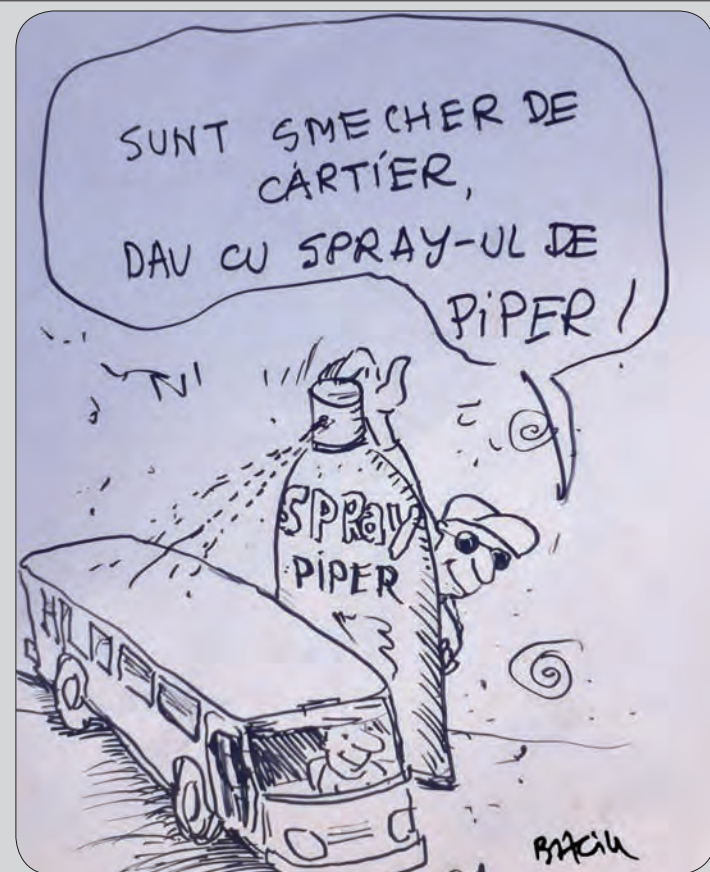 SUNT SMECHER DE
CARTIER,
DAU CU SPRAY-UL DE
PIPER!
SPRay
PIPER